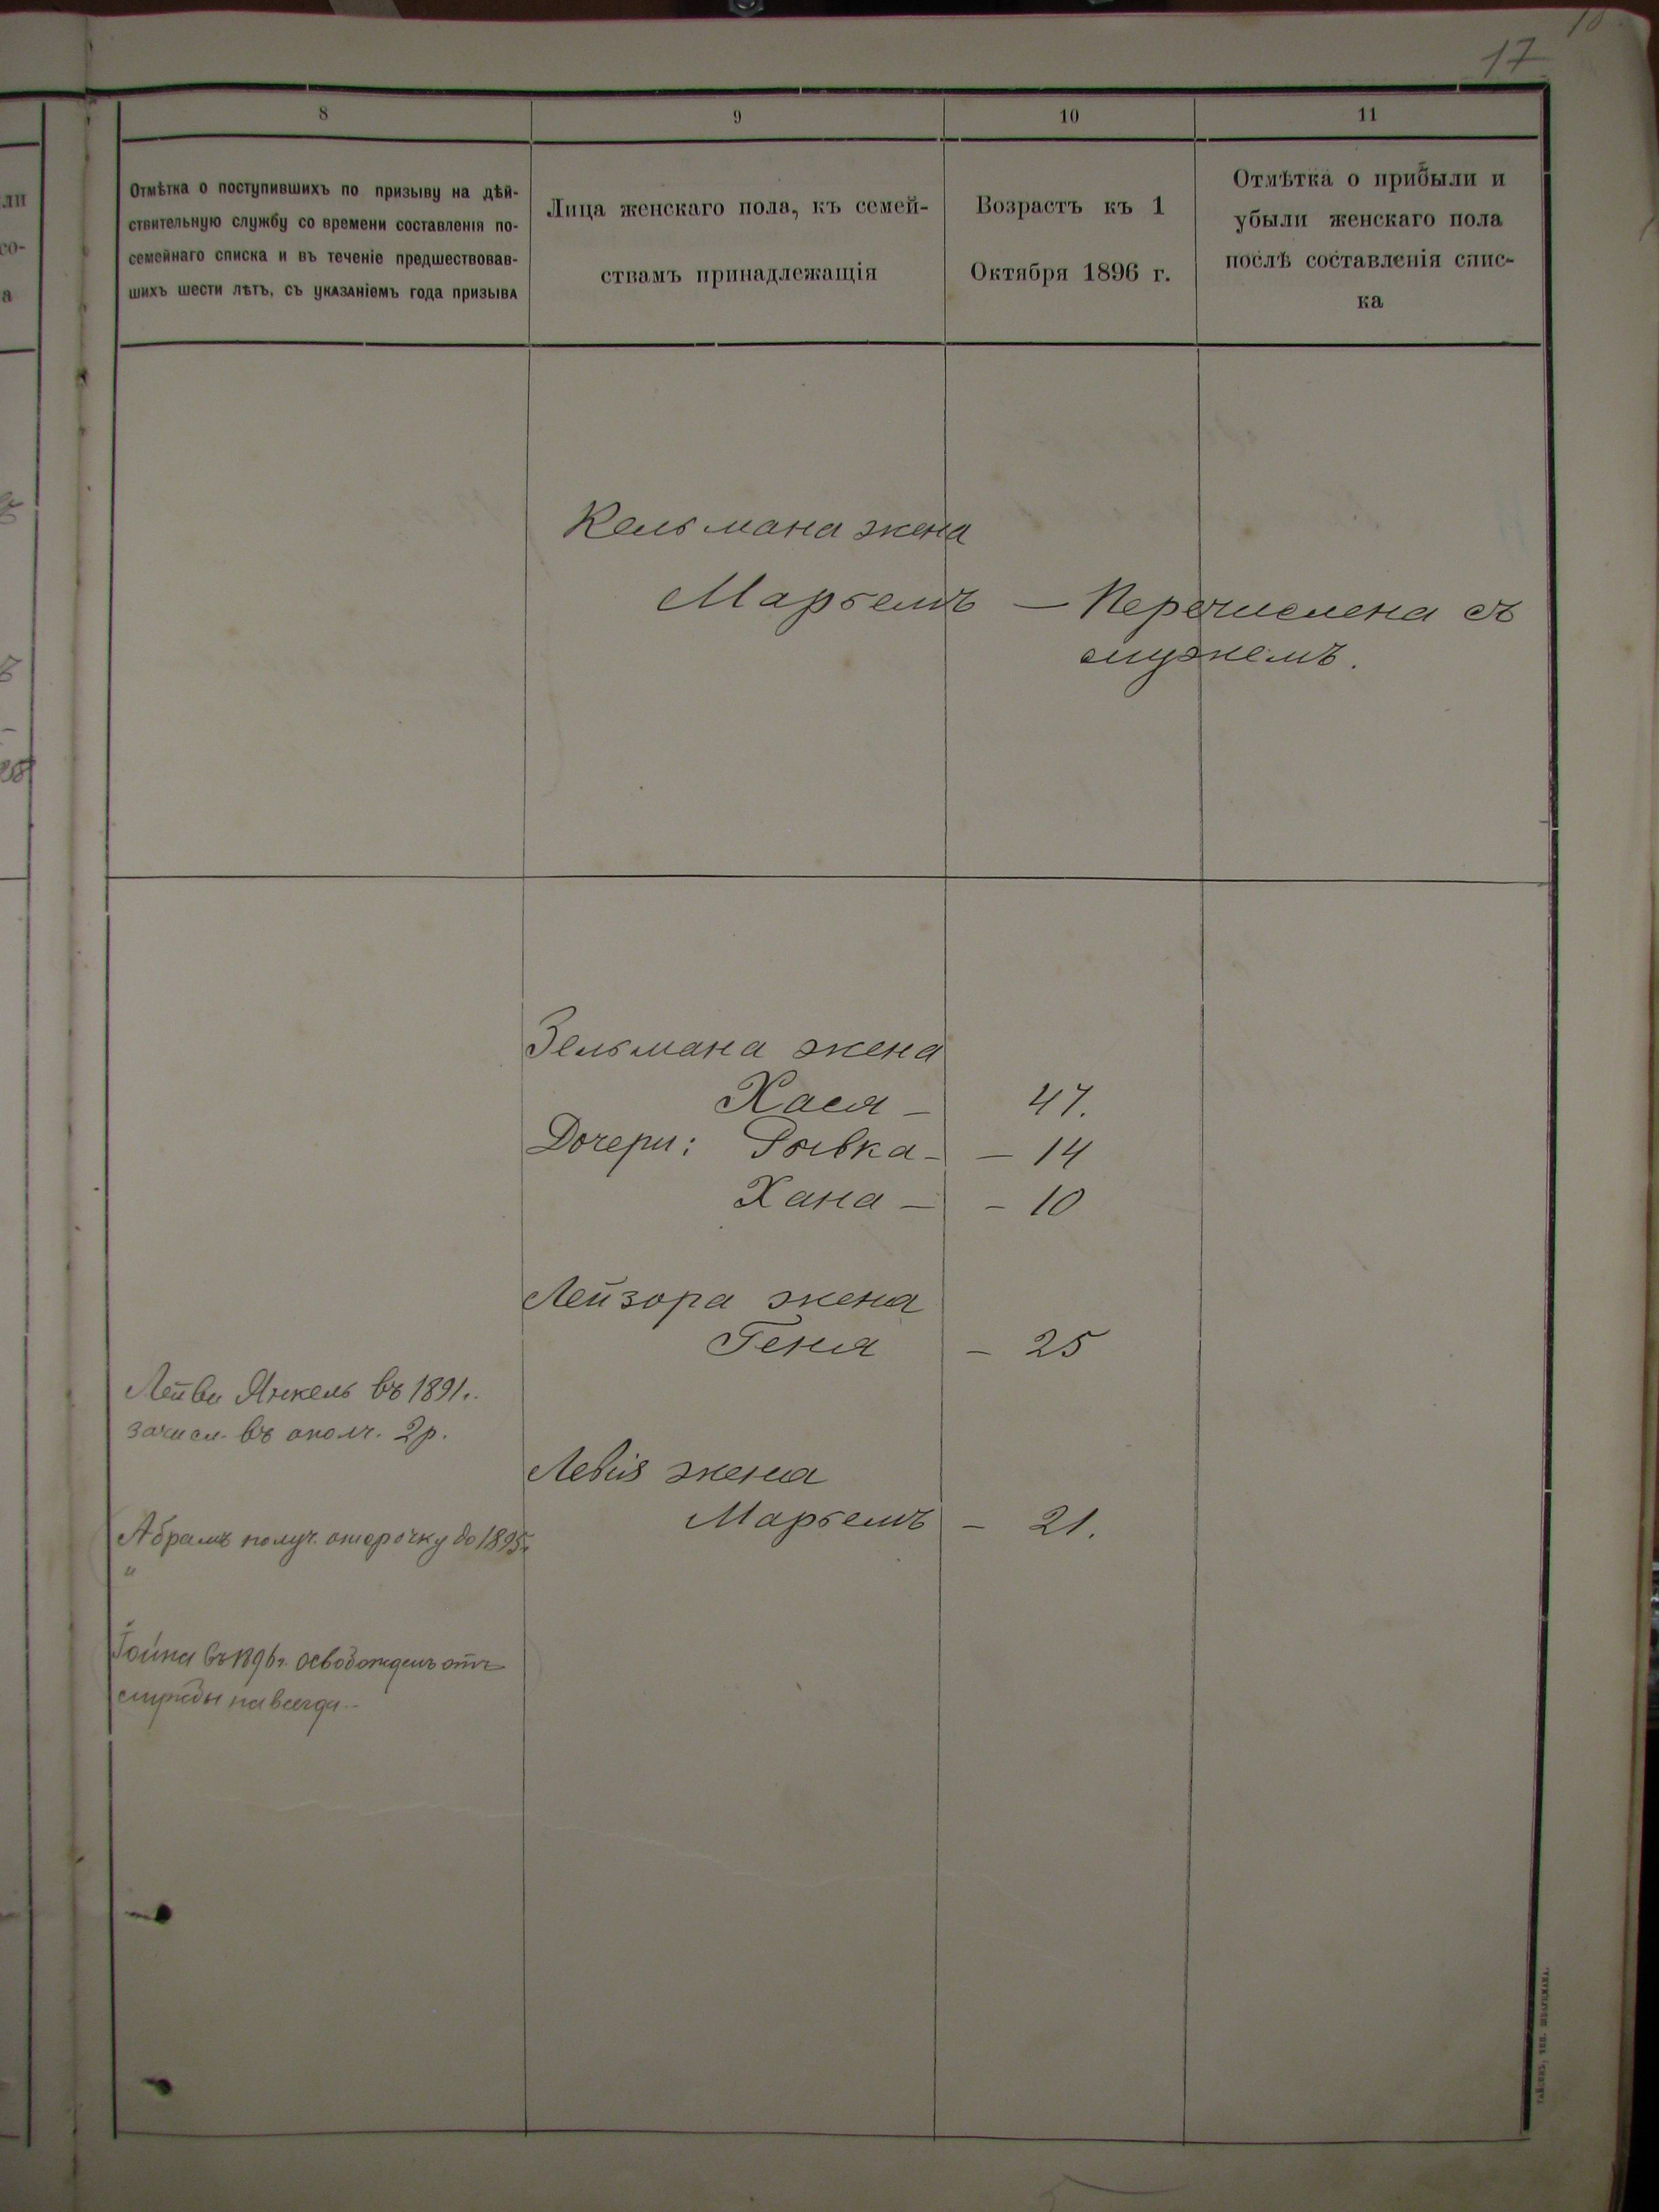 17
8
9
10
11
Отмѣтка о поступившихъ по призыву на дѣй-
ствительную службу со времени составленія по-
семейнаго списка и въ теченіе предшествовав-
шихъ шести лѣтъ, съ указаніемъ года призыва
Лица женскаго пола, къ семей-
ствамъ принадлежащія
Возрастъ къ 1
Октября 1896 г.
Отмѣтка о прибыли и
убыли женскаго пола
послѣ составленія спис-
ка
Кельмана жена
Марьемъ — Перечислена съ
мужемъ.
Зельмана жена
Хася — 47.
Дочери: Рывка — 14
Хана — 10
Лейзора жена
Геня — 25
Лейви Янкель въ 1891 г.
зачисл. въ ополч. 2 р.
Левія жена
Марьемъ — 21.
Абрамъ получ. отсрочку до 1895 г.
"
въ 1896 г. освобожденъ отъ
службы навсегда.—